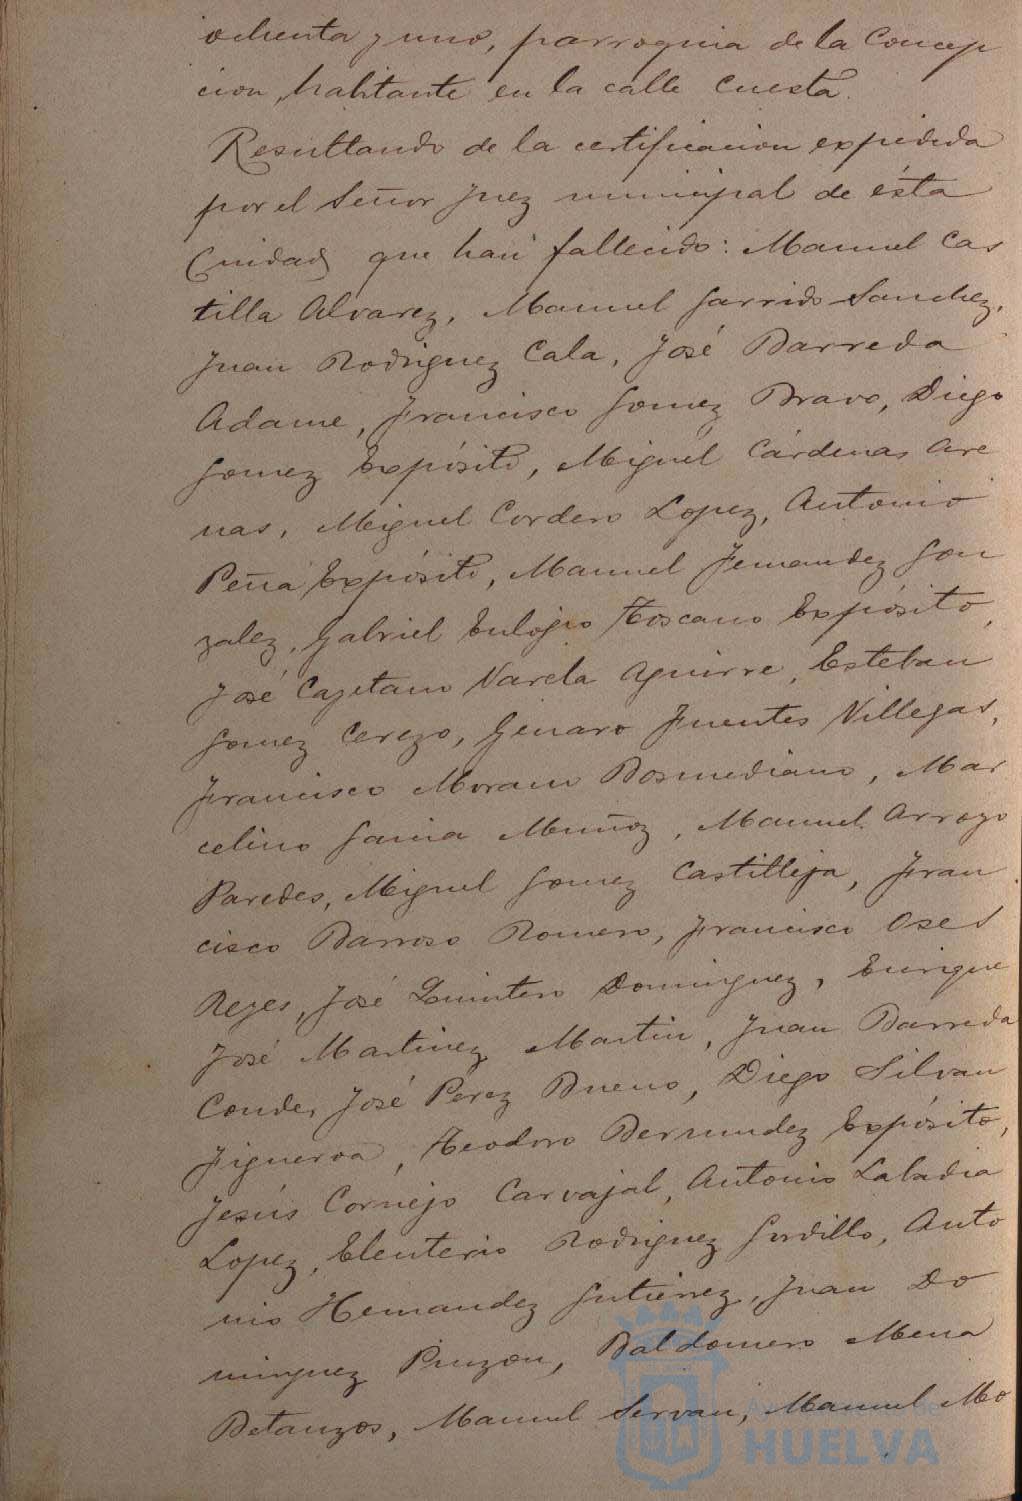 ochenta y uno, parroquia de la Concep
cion, habitante en la calle Cuesta.
Resultando de la certificacion expedida
por el Señor Juez municipal de ésta
Ciudad que han fallecido: Manuel Cas
tilla Alvarez, Manuel Garrido Sanchez,
Juan Rodriguez Cala, José Barreda
Adame, Francisco Gomez Bravo, Diego
Gomez Expósito, Miguel Cárdenas Are
nas, Miguel Cordero Lopez, Antonio
Peña Expósito, Manuel Fernandez Gon
zalez, Gabriel Eulogio Toscano Expósito,
José Cayetano Varela Aguirre, Esteban
Gomez Cerezo, Genaro Fuentes Villegas,
Francisco Moram Bosmediano, Mar
celino Gania Muñoz, Manuel Arroyo
Paredes, Miguel Gomez Castilleja, Fran
cisco Barroso Romero, Francisco Oses
Reyes, José Quintero Dominguez, Enrique
José Martinez Martin, Juan Barreda
Conde, José Perez Bueno, Diego Silvan
Figueroa, Teodoro Bermudez Expósito,
Jesús Cornejo Carvajal, Antonio Labadia
Lopez, Eleuterio Rodriguez Gordillo, Anto
nio Hernandez Gutierrez, Juan Do
minguez Pinzon, Baldomero Mena
Betanzos, Manuel Servan, Manuel Mo
HUELVA